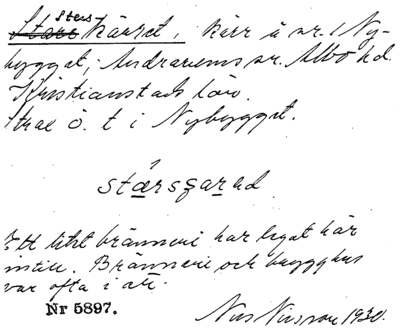 Sters
Stare kärret, kärr å nr. 1 Ny-
bygget, Andrarums sn. Albo hd.
Kristianstads län.
Strax ö. t i Nybygget.
stærsgarəd
Ett litet bränneri har legat här
intill. Bränneri och brygghus
var ofta i ett.
Nr 5897.
Nils Nilsson 1930.